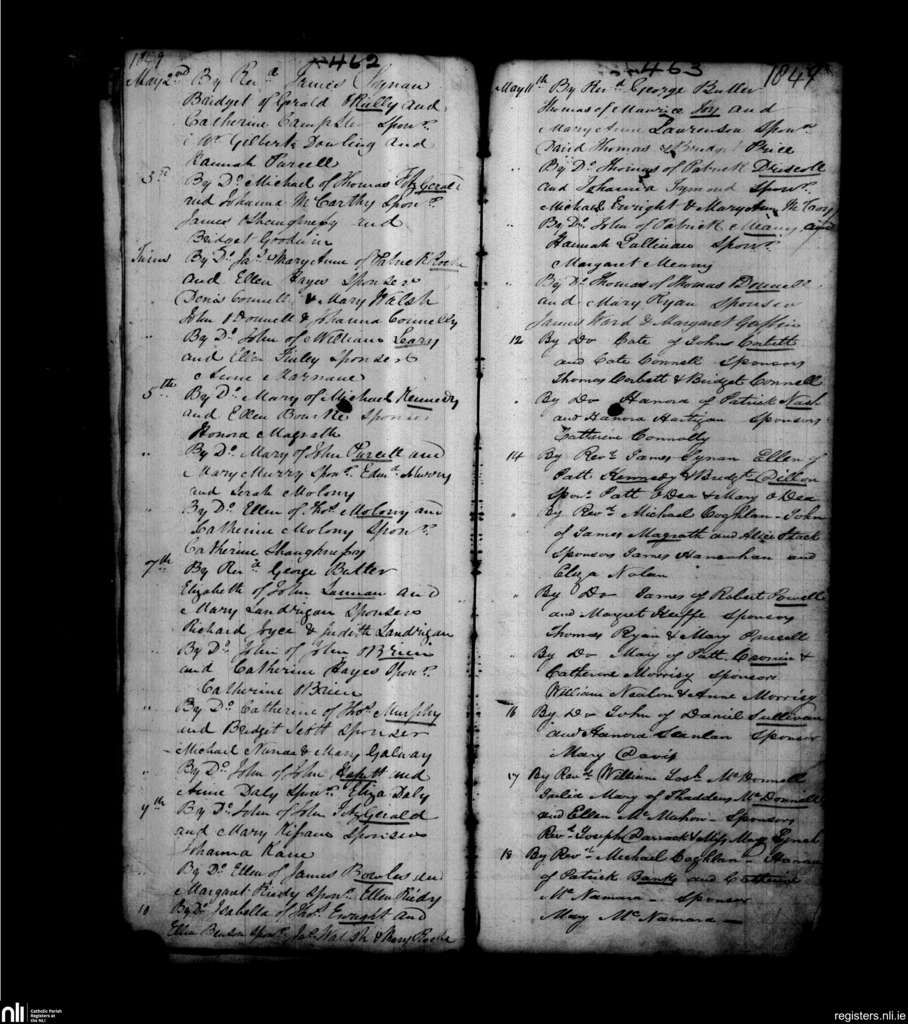 1849
462
May 2nd By Revd James Synan
Bridget of Gerald and
Catherine Spon.rs
Wm Gilbert Dowling and
Hannah Purcell
3rd By Do Michael of Thomas Fitzgerald
and Johanna McCarthy Spon.rs
James Shaughnessy and
Bridget Goodwin
Twins By Do Jas & Mary Anne of Patrick Roche
and Ellen Hayes Sponsers
Denis Connell & Mary Walsh
John O'Donnell & Johanna Connelly
" By Do John of William Leary
and Eliza Sponsers
Anne Marnane
5th By Do Mary of Michael Kennedy
and Ellen Bourke Sponsers
Honora Magrath
" By Do Mary of John Purcell and
Mary Murry Spon.rs Edmd
and Sarah Molony
" By Do Ellen of Thos Molony and
Catherine Molony Spon.rs
Catherine Shaughnessy
7th By Revd George Butler
Elizabeth of John and
Mary Landrigan Sponsers
Richard Joyce & Judith Landrigan
" By Do John of John O'Brien
and Catherine Hayes Spon.rs
Catherine O'Brien
" By Do Catherine of Thos Murphy
and Bridget Scott Sponser
Michael & Mary Galway
" By Do John of John and
Anne Daly Spon.rs Eliza Daly
9th By Do John of John Fitzgerald
and Mary Sponsers
Johanna Kane
By Do Ellen of James Bowles and
Margaret Reidy Spon.rs Ellen Reidy
10 By Do Isabella of Thos Enright and
Ellen Benson Spon.rs Jas Walsh & Mary Roche
463
1849
May 11th By Revd George Butler
Thomas of Maurice and
Mary Anne Laurenson Spon.rs
David Thomas & Bridget Price
" By Do Thomas of Patrick Driscoll
and Johanna Spon.rs
Michael Enright & Mary Ann
" By Do John of Patrick Meany and
Hannah Spon.rs
Margaret
" By Do Thomas of Thomas
and Mary Ryan Sponsers
James Ward & Margaret
12 By Do Cate of John Corbett
and Cate Connell Sponsors
Thomas Corbett & Bridget Connell
" By Do Hanora of Patrick Nash
and Hanora Hartigan Sponsors
Catherine Connolly
14 By Revd James Synan Ellen of
Patt Kennedy & Bridgt Dillon
Spons Patt O'Dea & Mary O'Dea
" By Revd Michael Coghlan - John
of James Magrath and Alice Stack
Sponsors James Hanrahan and
Eliza Nolan
" By Do James of Robert Powell
and Margret Keiffe Sponsors
Thomas Ryan & Mary Russell
" By Do Mary of Patt Cronin &
Catherine Morrisy Sponsors
William Nealon & Anne Morrisy
16 By Do John of Daniel Sullivan
and Hanora Scanlan Sponsor
Mary Davis
17 By Revd William McDonnell
Julia Mary of Thaddeus McDonnell
and Ellen McMahon - Sponsors
Revd Joseph Darrack & Miss Mary Lynch
18 By Revd Michael Coghlan -
of Patrick Banks and Catherine
McNamara - Sponsor
Mary McNamara -
nli
Catholic Parish
Registers at
the NLI
registers.nli.ie